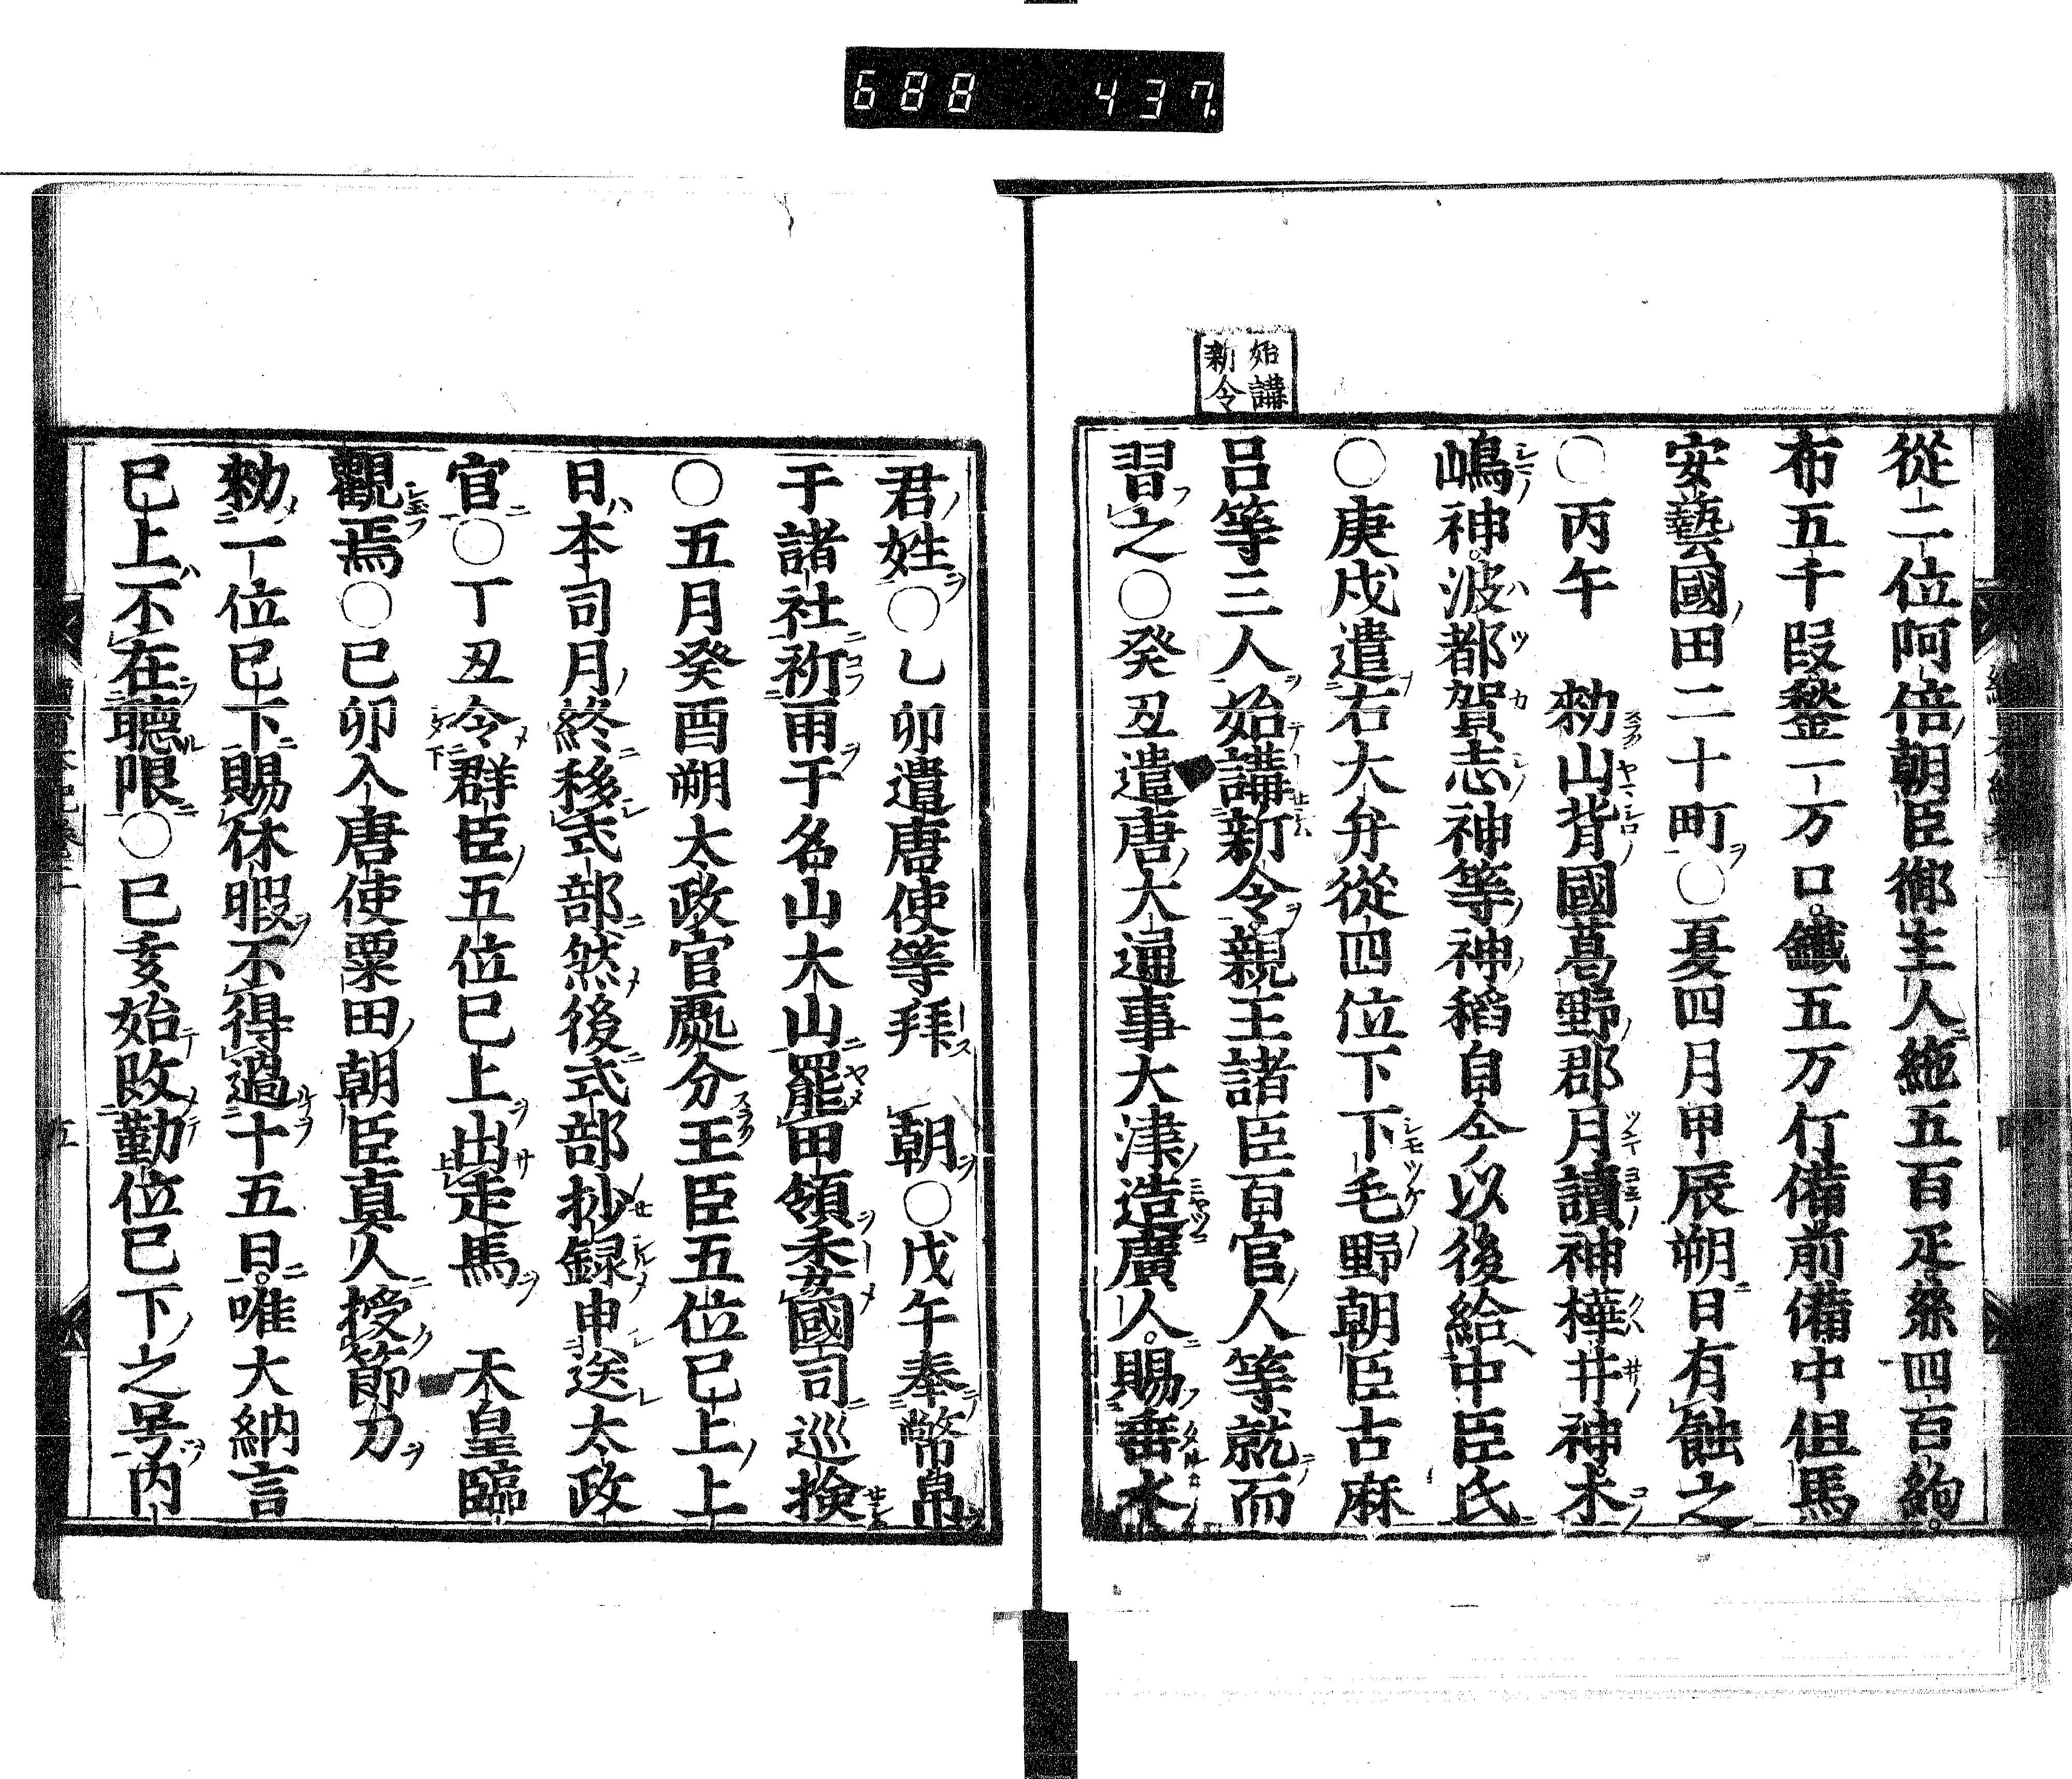 688 437
始講
新令
從二位阿倍朝臣御主人絁五百疋絲四百絇
布五千段鍫一万口鐵五万斤備前備中但馬
安藝國田二十町○夏四月甲辰朔日有蝕之
○丙午 勑山背國葛野郡月讀神樺井神木
嶋神波都賀志神等神稻自今以後給中臣氏
○庚戌遣右大弁從四位下下毛野朝臣古麻
呂等三人始講新令親王諸臣百官人等就而
習之○癸丑遣唐大通事大津造廣人賜垂水
君姓○乙卯遣唐使等拜 朝○戊午奉幣帛
于諸社祈雨于名山大山罷田領委國司巡撿
○五月癸酉朔太政官處分王臣五位已上上
日本司月終移式部然後式部抄録申送太政
官○丁丑令群臣五位已上出走馬 天皇臨
觀焉○己卯入唐使粟田朝臣真人授節刀
勑一位已下賜休暇不得過十五日唯大納言
已上不在聽限○己亥始改勤位已下之号内